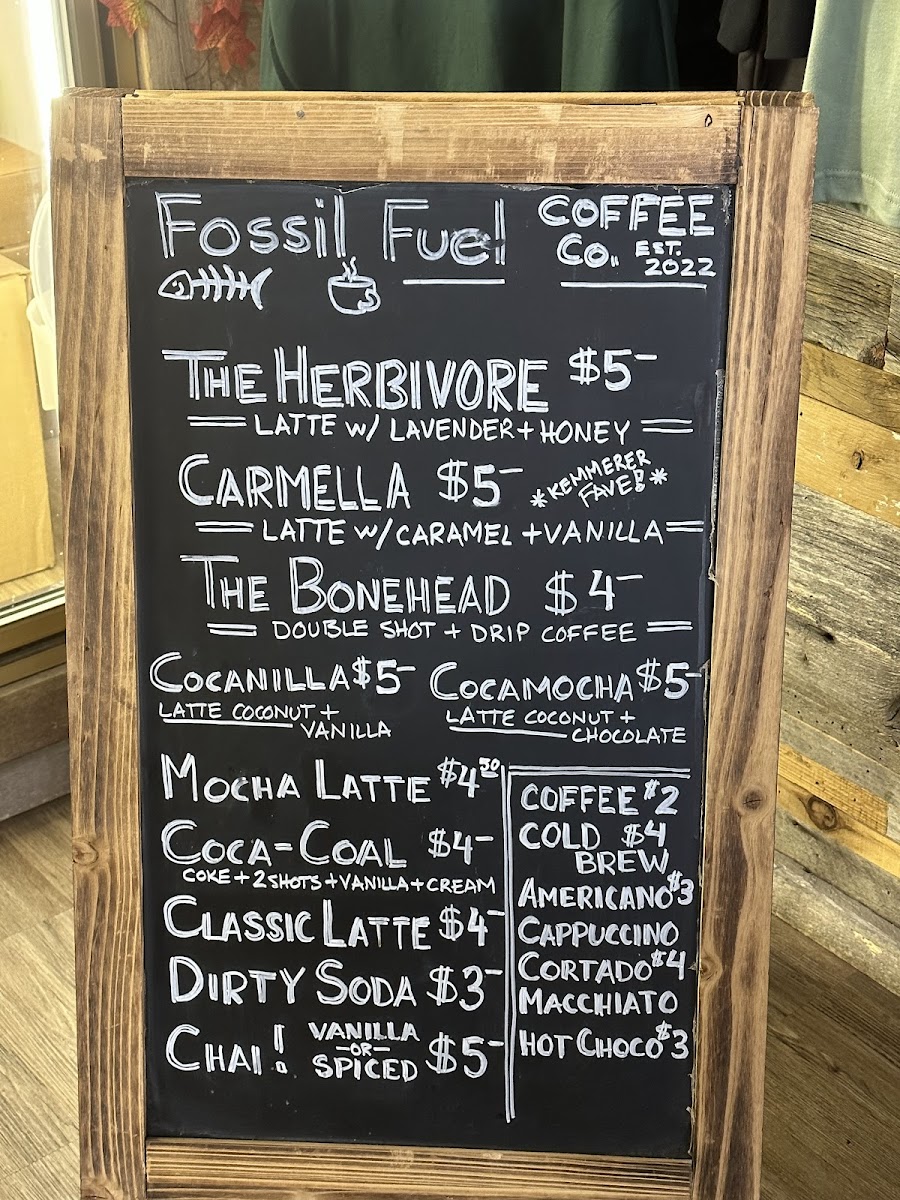 Fossil Fuel COFFEE
Co. EST.
2022
THE HERBIVORE $5-
LATTE w/ LAVENDER + HONEY
CARMELLA $5- *KEMMERER
FAVE!*
LATTE w/ CARAMEL + VANILLA
THE BONEHEAD $4-
DOUBLE SHOT + DRIP COFFEE
COCANILLA $5-
LATTE COCONUT +
VANILLA
COCAMOCHA $5-
LATTE COCONUT +
CHOCOLATE
MOCHA LATTE $4.50
COCA-COAL $4-
COKE + 2 SHOTS + VANILLA + CREAM
CLASSIC LATTE $4-
DIRTY SODA $3-
CHAI! VANILLA
-OR-
SPICED $5-
COFFEE $2
COLD $4
BREW
AMERICANO $3
CAPPUCCINO
CORTADO $4
MACCHIATO
HOT CHOCO $3